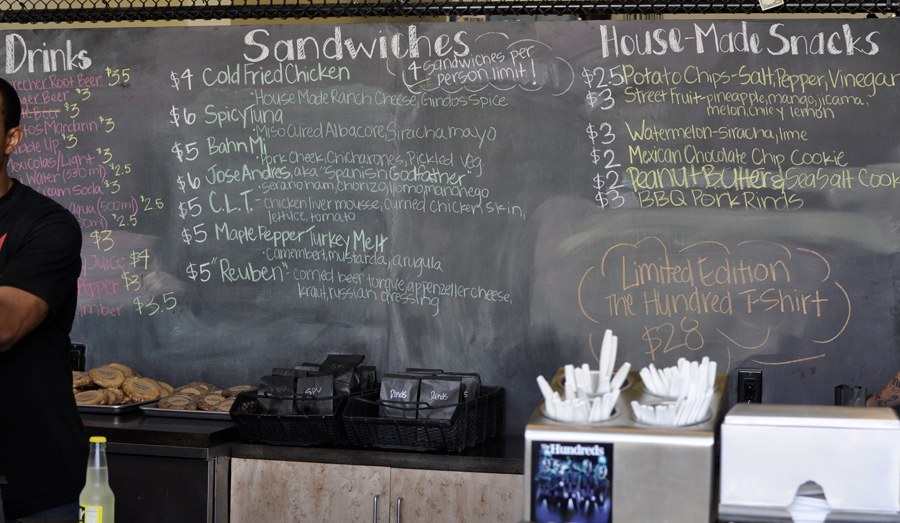 Drinks
Root Beer $3.5
Beer $3
Beer $3
Mandarin $3
Up $3
Light $3
Water (330ml) $2.5
Soda $3
(500ml) $2.5
$2.5
$3
Juice $4
$3.5
Sandwiches
4 sandwiches per
person limit!
$4 Cold Fried Chicken
House Made Ranch Cheese, Spice
$6 Spicy Tuna
Miso Cured Albacore, Siracha mayo
$5 Bahn Mi
Pork Cheek, Chicharones, Pickled Veg
$6 Jose Andres a.k.a "Spanish Godfather"
serano ham, chorizo, lomo, manchego
$5 C.L.T. - chicken liver mousse, curried chicken skin,
lettuce, tomato
$5 Maple Pepper Turkey Melt
camembert, mustarda, arugula
$5 "Reuben" - corned beef tongue, appenzeller cheese,
kraut, russian dressing
House-Made Snacks
$2.5 Potato Chips - Salt, Pepper, Vinegar
$3 Street Fruit - pineapple, mango, jicama,
melon, chile y lemon
$3 Watermelon - siracha, lime
$2 Mexican Chocolate Chip Cookie
$2 Peanut Butter & Sea Salt Cook
$3 BBQ Pork Rinds
Limited Edition
The Hundred T-Shirt
$28
Rinds
Rinds
The Hundreds